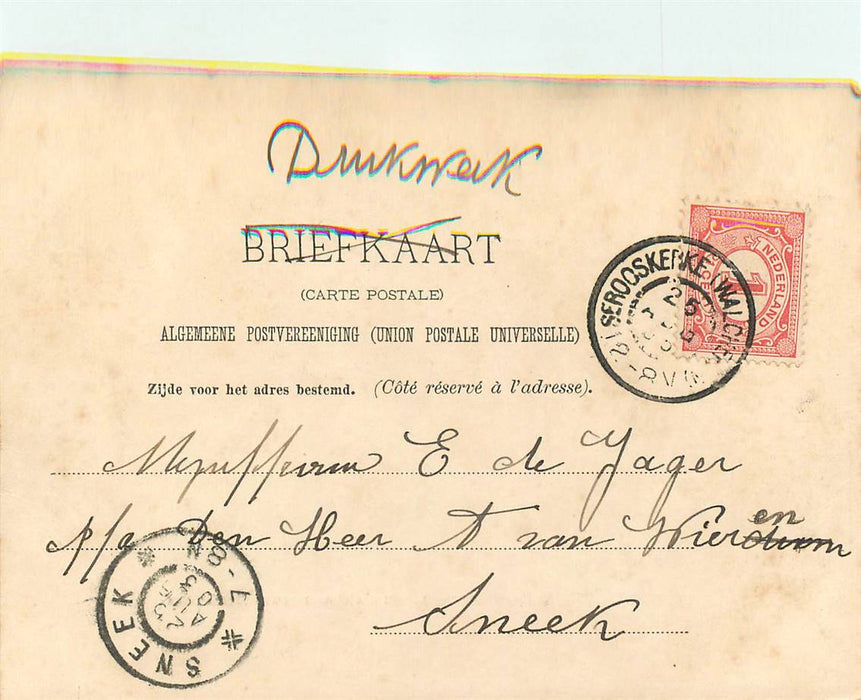 Drukwerk
BRIEFKAART
(CARTE POSTALE)
ALGEMEENE POSTVEREENIGING (UNION POSTALE UNIVERSELLE)
Zijde voor het adres bestemd. (Côté réservé à l'adresse).
NEDERLAND
1
SEROOSKERKE (WALCH
25
12-8VM
Mejuffrouw E de Jager
p/a Den Heer A van Wierden
Sneek
SNEEK
7-8